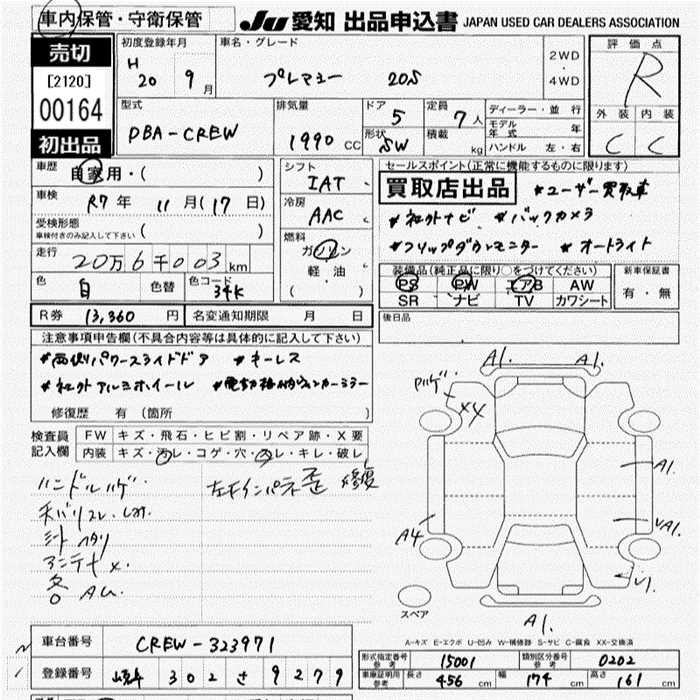 車内保管・守衛保管 JU 愛知 出品申込書 JAPAN USED CAR DEALERS ASSOCIATION
売切
[2120]
00164
初出品
初度登録年月
H 20 9 月
車名・グレード
プレマシー 20S
2WD
・
4WD
評価点
R
外装 内装
C C
型式
DBA-CREW
排気量
1990 CC
ドア 5
形状 SW
定員 7 人
積載 kg
ディーラー・並行
モデル年式 年
ハンドル 左・右
車歴 自家用・( )
車検 R7 年 11 月 (17 日)
受検形態
車検付きのみ記入して下さい ( )
走行 20万6千003 km
色 白 色替 色コード 34K
シフト
IAT
冷房
AAC
燃料
ガソリン
軽油
( )
セールスポイント(正常に機能するものに限ります)
買取店出品 *ユーザー買取車
*社外ナビ *バックカメラ
*フリップダウンモニター *オートライト
装備品(純正品に限り○をつけてください)
PS PW エアB AW
SR ナビ TV カワシート
新車保証書
有・無
R券 13,360 円 名変通知期限 月 日
後日品
注意事項申告欄(不具合内容等は具体的に記入して下さい)
*両側パワースライドドア *キーレス
*社外アルミホイール *電動格納ウィンカーミラー
修復歴 有 (箇所 )
検査員記入欄
FW キズ・飛石・ヒビ割・リペア跡・X要
内装 キズ・汚レ・コゲ・穴・スレ・キレ・破レ
ハンドルハゲ 左右インパネ歪 修復
アンテナ X.
各 AU.
A1. A1.
XX
A1.
A4
A1.
スペア
A1.
A-キズ E-エクボ U-凹み W-補修跡 S-サビ C-腐食 XX-交換済
車台番号 CREW-323971
登録番号 302 さ 9279
型式指定番号 参考 15001 類別区分番号 参考 0202
車庫証明用 参考 長さ 456 cm 幅 174 cm 高さ 161 cm